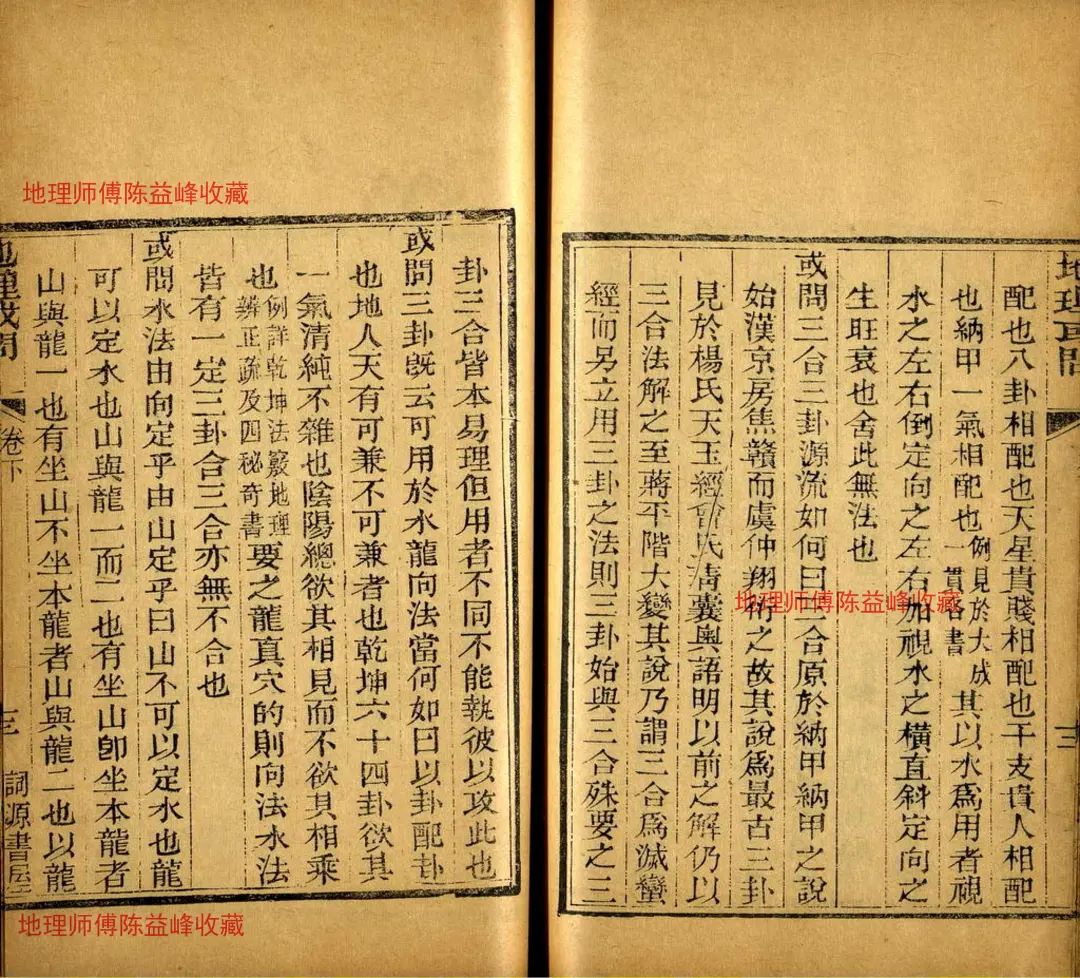 地理或問
十二
配也八卦相配也天星貴賤相配也干支貴人相配
也納甲一氣相配也例見於大成一貫各書其以水爲用者視
水之左右倒定向之左右加視水之橫直斜定向之
生旺衰也舍此無法也
或問三合三卦源流如何曰三合原於納甲納甲之說
始漢京房焦贛而虞仲翔術之故其說爲最古三卦
見於楊氏天玉經曾氏淸囊奧語明以前之解仍以
三合法解之至蔣平階大變其說乃謂三合爲滅蠻
經而另立用三卦之法則三卦始與三合殊要之三
卦三合皆本易理但用者不同不能執彼以攻此也
或問三卦旣云可用於水龍向法當何如曰以卦配卦
也地人天有可兼不可兼者也乾坤六十四卦欲其
一氣清純不雜也陰陽總欲其相見而不欲其相乘
也例詳乾坤法竅地理辨正疏及四秘奇書要之龍真穴的則向法水法
皆有一定三卦合三合亦無不合也
或問水法由向定乎由山定乎曰山不可以定水也龍
可以定水也山與龍一而二也有坐山卽坐本龍者
山與龍一也有坐山不坐本龍者山與龍二也以龍
地理或問
卷下
詞源書屋
地理师傅陈益峰收藏
地理师傅陈益峰收藏
地理师傅陈益峰收藏